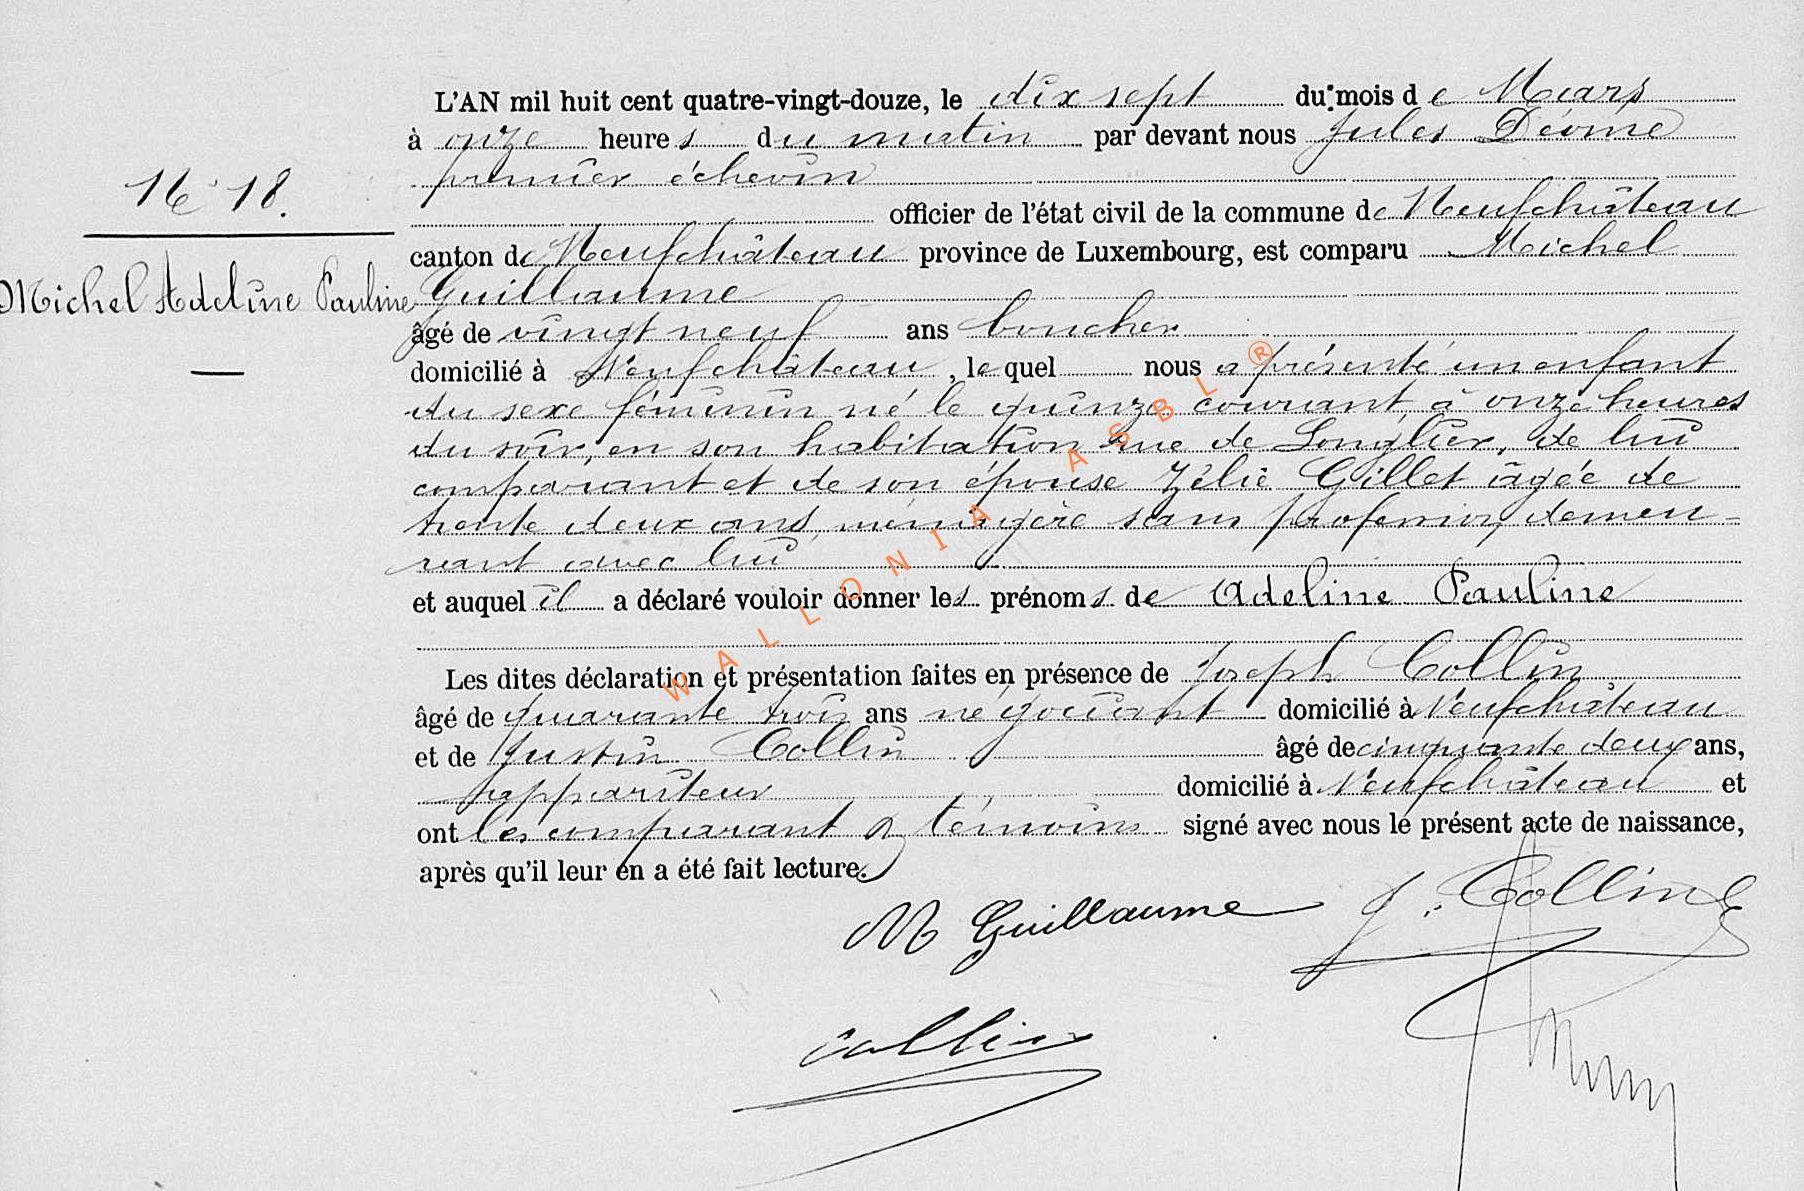 L'AN mil huit cent quatre-vingt-douze, le dix sept du mois de Mars
à onze heures du matin par devant nous Jules
premier échevin
officier de l'état civil de la commune de Neufchâteau
canton de Neufchâteau province de Luxembourg, est comparu Michel
Guillaume
âgé de vingt neuf ans boucher
domicilié à Neufchâteau, lequel nous a présenté un enfant
du sexe féminin né le quinze courant, à onze heures
du soir, en son habitation rue de Longlier, de lui
comparant et de son épouse Zélie Gillet âgée de
trente deux ans, ménagère sans profession, demeu-
rant avec lui
et auquel il a déclaré vouloir donner les prénoms de Adeline Pauline
Les dites déclaration et présentation faites en présence de Joseph Collin
âgé de quarante trois ans négociant domicilié à Neufchâteau
et de Justin Collin âgé de cinquante deux ans,
appariteur domicilié à Neufchâteau et
ont les comparant & témoins signé avec nous le présent acte de naissance,
après qu'il leur en a été fait lecture.
18.
Michel Adeline Pauline
M Guillaume
J. Collin
Collin
WALLONIA ASBL ®